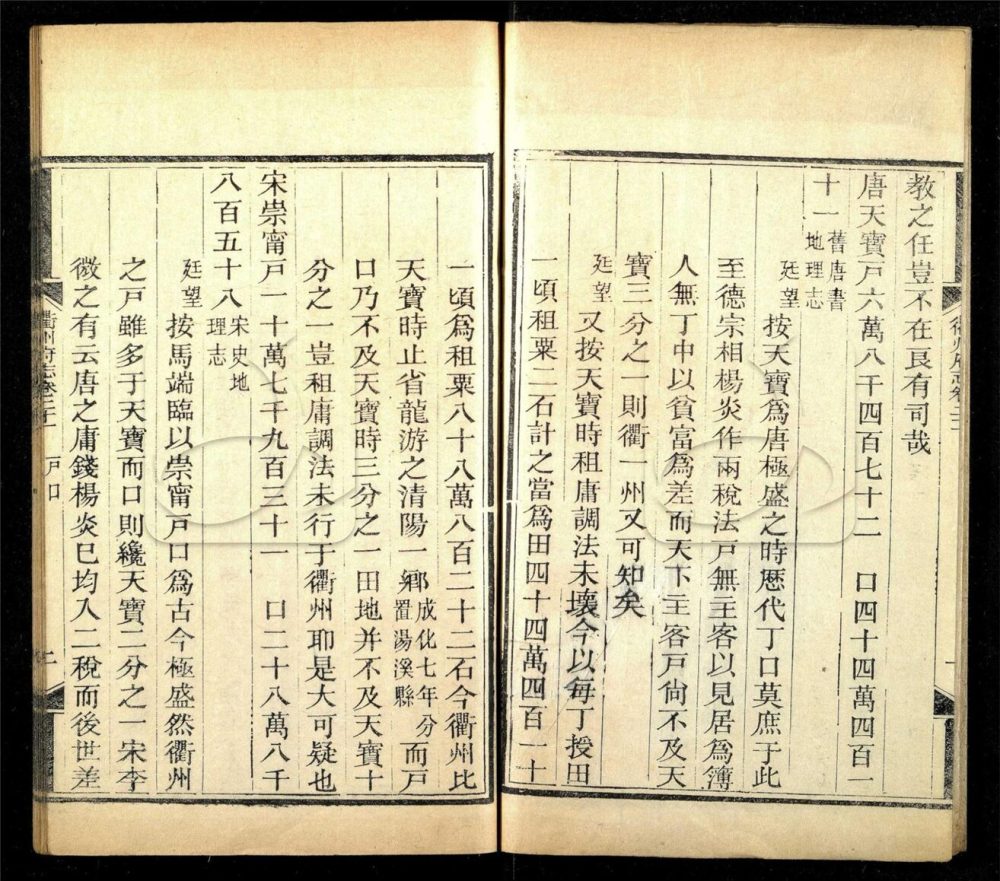 教之任豈不在良有司哉
唐天寶戸六萬八千四百七十二　口四十四萬四百一
十一舊唐書地理志
廷望　按天寶爲唐極盛之時歷代丁口莫庶于此
至德宗相楊炎作兩稅法戸無主客以見居爲簿
人無丁中以貧富爲差而天下主客戸尚不及天
寶三分之一則衢一州又可知矣
廷望　又按天寶時租庸調法未壞今以每丁授田
一頃租粟二石計之當爲田四十四萬四百一十
一頃爲租粟八十八萬八百二十二石今衢州比
天寶時止省龍游之清陽一鄉成化七年分置湯溪縣而戸
口乃不及天寶時三分之一田地并不及天寶十
分之一豈租庸調法未行于衢州耶是大可疑也
宋崇甯戸一十萬七千九百三十一　口二十八萬八千
八百五十八宋史地理志
廷望　按馬端臨以崇甯戸口爲古今極盛然衢州
之戸雖多于天寶而口則纔天寶二分之一宋李
微之有云唐之庸錢楊炎已均入二稅而後世差
衢州府志卷二十一　戸口　二